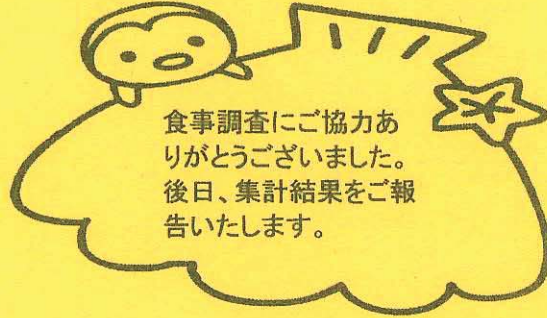 食事調査にご協力あ
りがとうございました。
後日、集計結果をご報
告いたします。